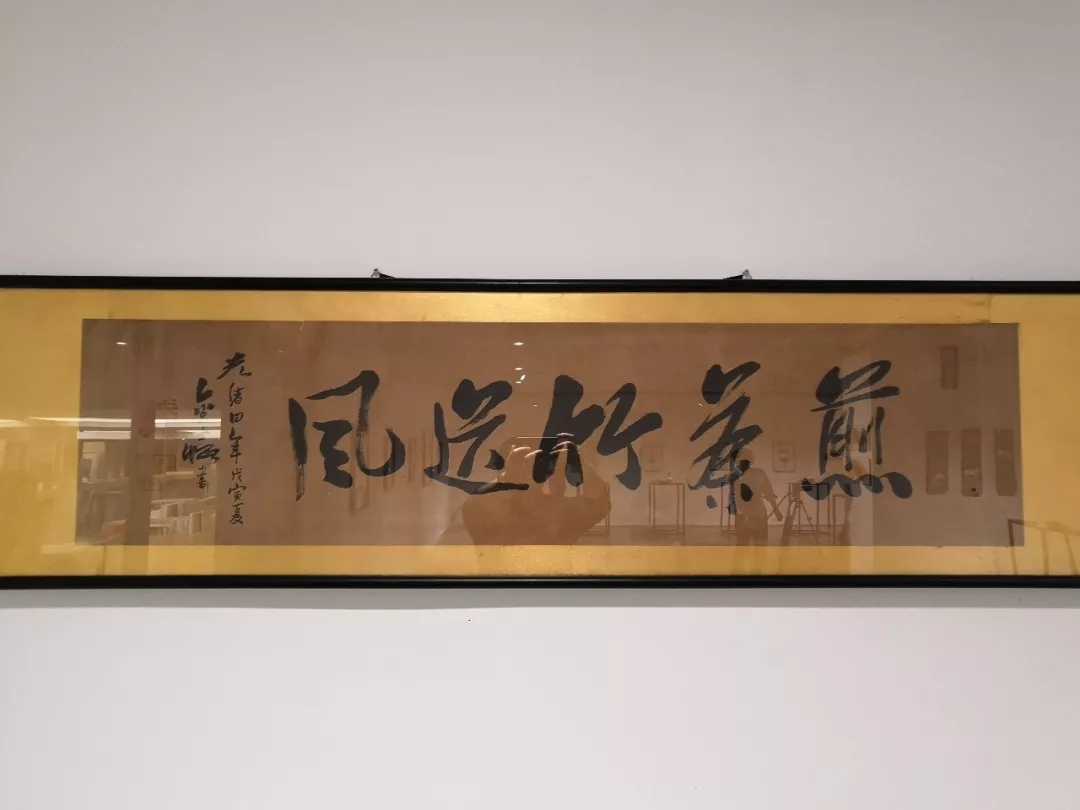 煎茶竹送風
光緒四年戊寅夏
書